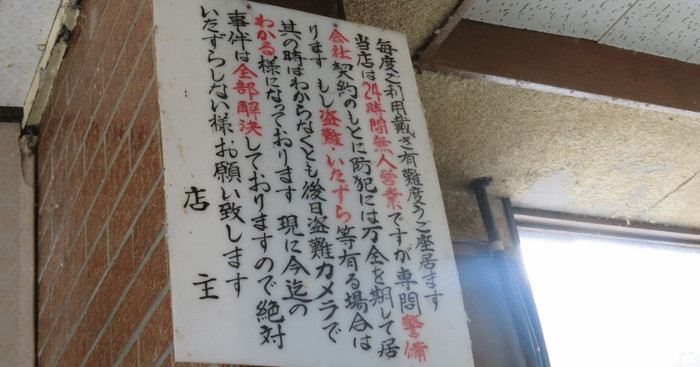 毎度ご利用戴き有難度うご座居ます
当店は24時間無人営業ですが専門警備
会社契約のもとに防犯には万全を期して居
ります もし盗難・いたずら等有る場合は
其の時はわからなくとも後日盗難カメラで
わかる様になっております 現に今迄の
事件は全部解決しておりますので絶対
いたずらしない様お願い致します
店 主